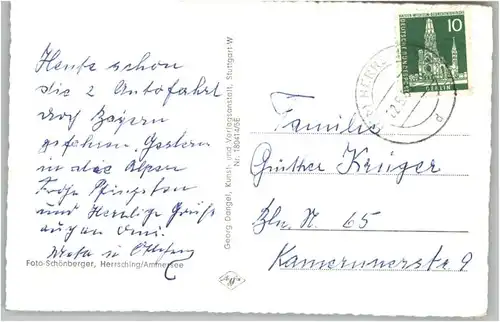 Heute schon
die 2 Autofahrt
durch Bayern
gefahren. Gestern
in die Alpen
Frohe Pfingsten
und Herzliche Grüße
auch an Omi.
u
Foto-Schönberger, Herrsching/Ammersee
Georg Dangel, Kunst- und Verlagsanstalt, Stuttgart-W
Nr. 189414/GE
10
DEUTSCHE BUNDESPOST
BERLIN
HERR
d
Familie
Günther Krüger
Bln. N. 65
Kamerunerstr. 9